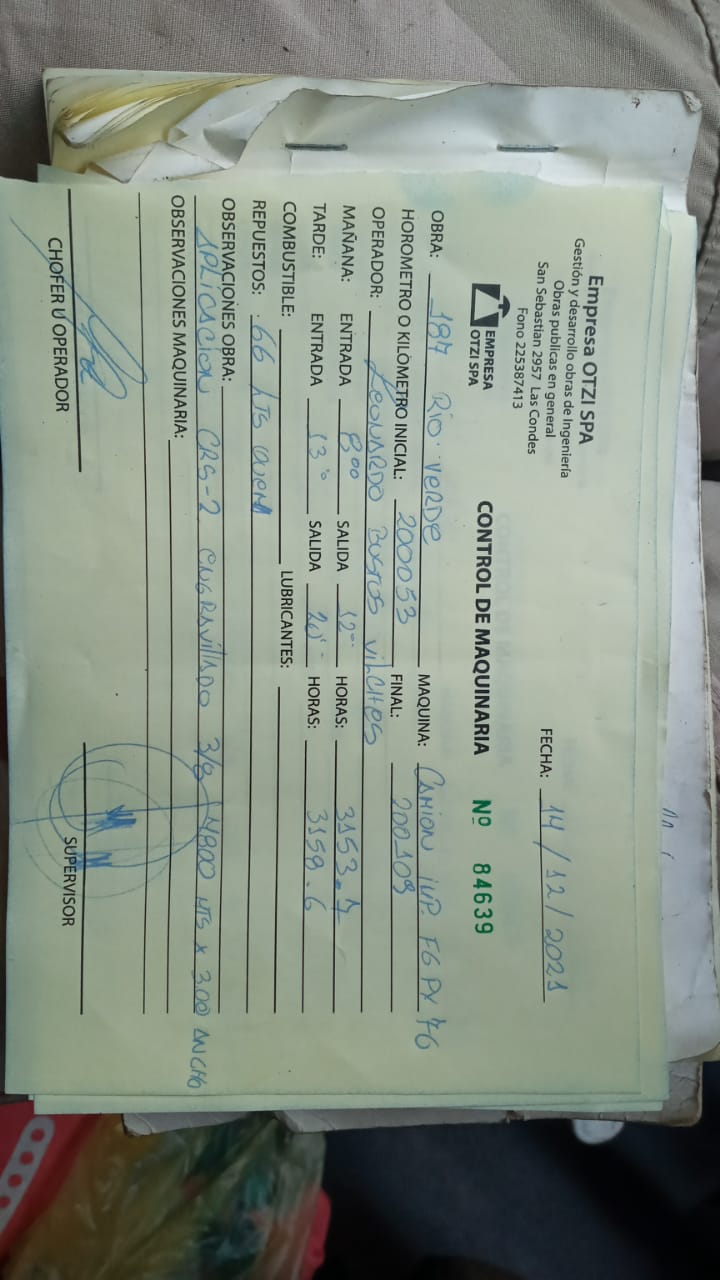 Empresa OTZI SPA
Gestión y desarrollo obras de Ingeniería
Obras publicas en general
San Sebastian 2957 Las Condes
Fono 225387413
EMPRESA
OTZI SPA
FECHA: 14/12/2021
CONTROL DE MAQUINARIA Nº 84639
OBRA: 187 Rio Verde MAQUINA: CAMION iMP. FG PX 76
HOROMETRO O KILOMETRO INICIAL: 200053 FINAL: 200109
OPERADOR: LEONARDO BUSTOS ViLCHES
MAÑANA: ENTRADA 8⁰⁰ SALIDA 12 HORAS: 3153.7
TARDE: ENTRADA 13 SALIDA 20 HORAS: 3158.6
COMBUSTIBLE: LUBRICANTES:
REPUESTOS: 66 LTS
OBSERVACIONES OBRA:
APLICACION CRS-2 ENGRAVillADO 3/8 4800 MTS x 3.00 ANCHO
OBSERVACIONES MAQUINARIA:
CHOFER U OPERADOR SUPERVISOR